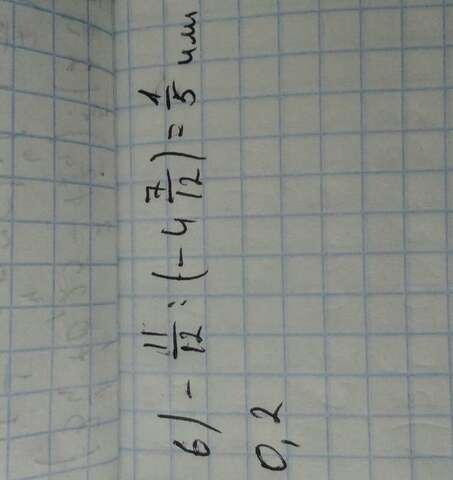 6) - 11/12 : (- 4 7/12) = 1/5 или
0,2